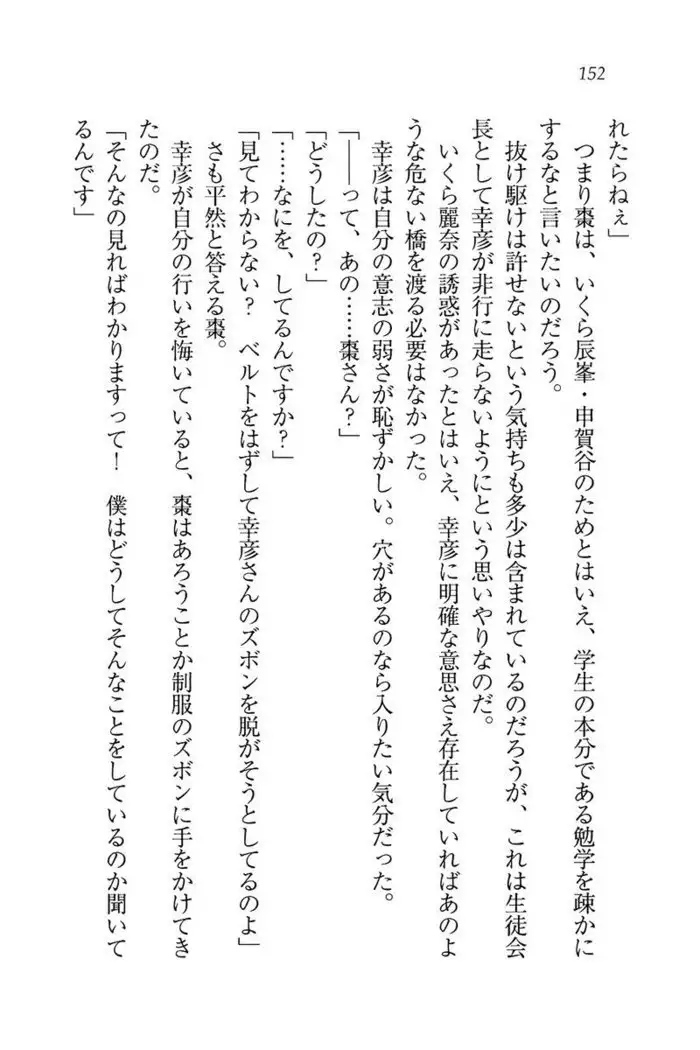 152
れたらねぇ」
つまり棗は、いくら辰峯・申賀谷のためとはいえ、学生の本分である勉学を疎かに
するなと言いたいのだろう。
抜け駆けは許せないという気持ちも多少は含まれているのだろうが、これは生徒会
長として幸彦が非行に走らないようにという思いやりなのだ。
いくら麗奈の誘惑があったとはいえ、幸彦に明確な意思さえ存在していればあのよ
うな危ない橋を渡る必要はなかった。
幸彦は自分の意志の弱さが恥ずかしい。穴があるのなら入りたい気分だった。
「――って、あの……棗さん?」
「どうしたの?」
「……なにを、してるんですか?」
「見てわからない?　ベルトをはずして幸彦さんのズボンを脱がそうとしてるのよ」
さも平然と答える棗。
幸彦が自分の行いを悔いていると、棗はあろうことか制服のズボンに手をかけてき
たのだ。
「そんなの見ればわかりますって!　僕はどうしてそんなことをしているのか聞いて
るんです」